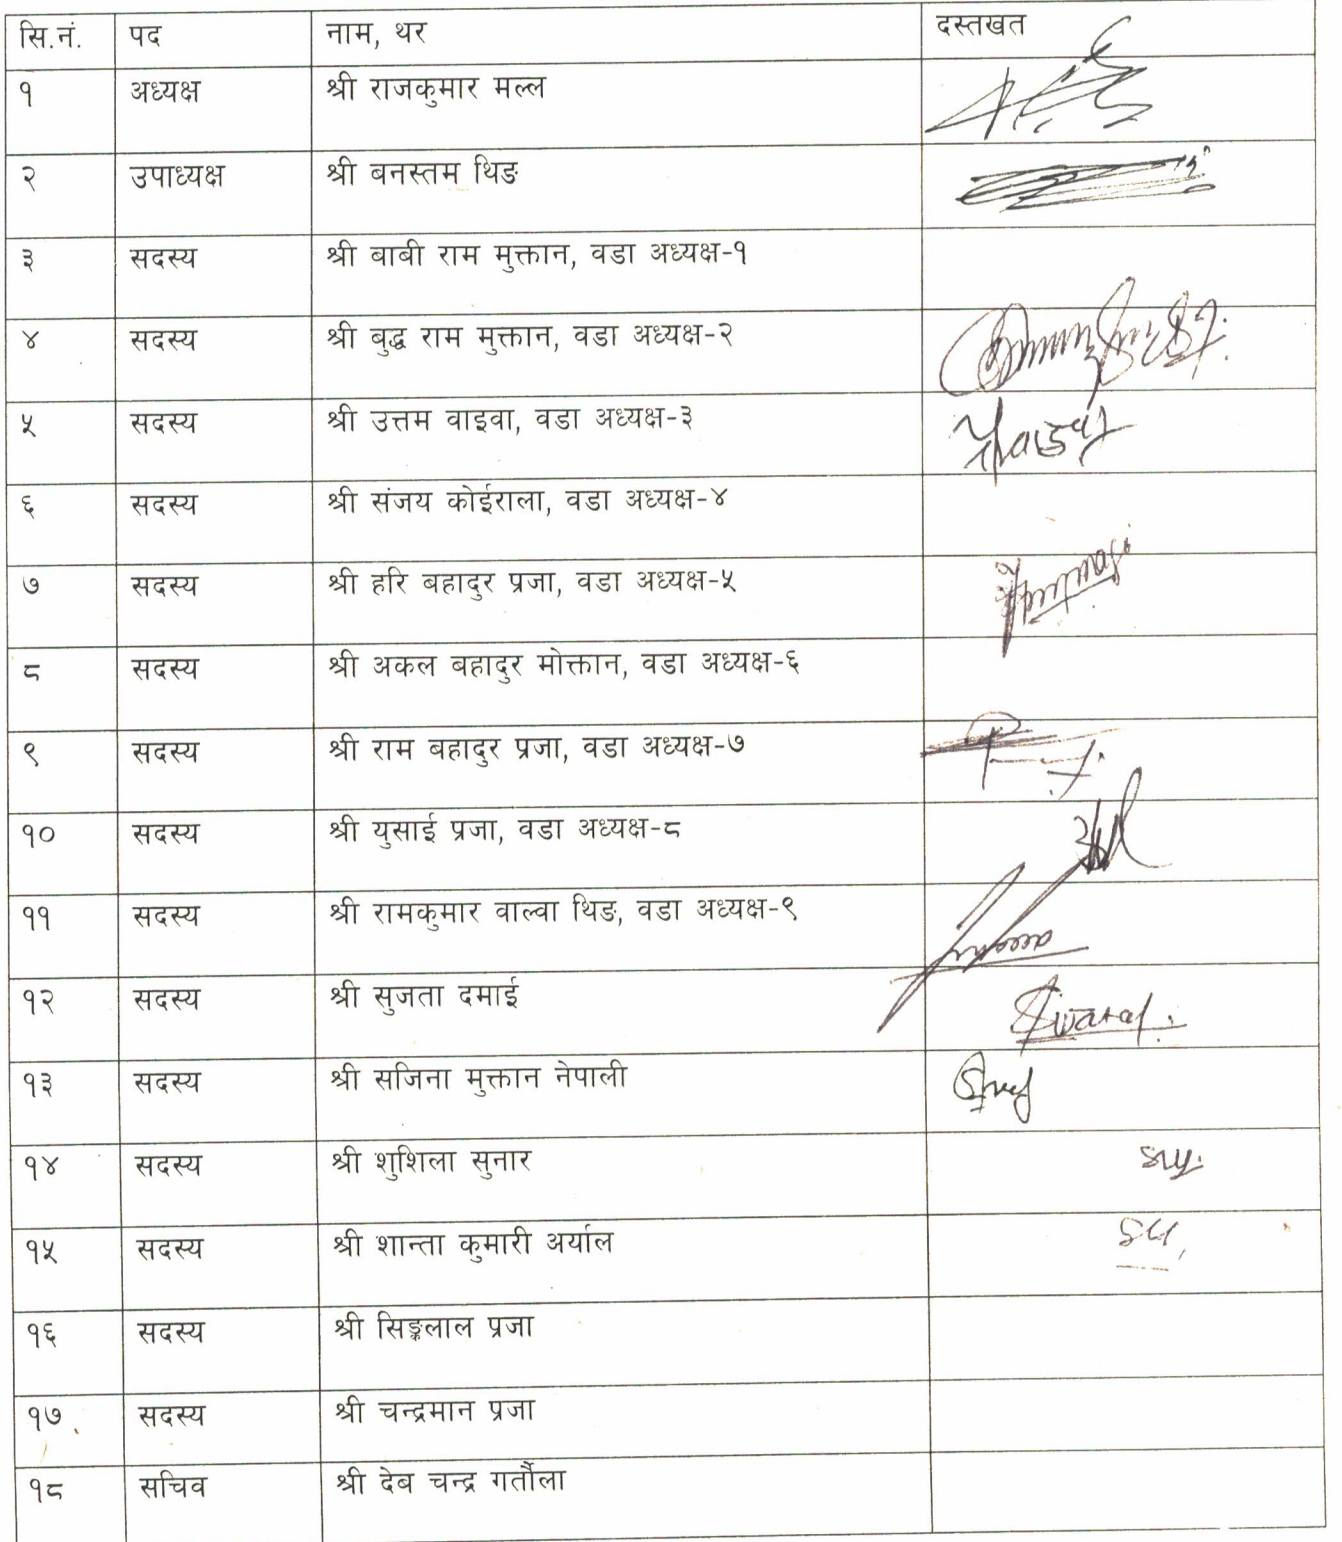 सि.नं. पद नाम, थर दस्तखत
१ अध्यक्ष श्री राजकुमार मल्ल
२ उपाध्यक्ष श्री बनस्तम थिङ
३ सदस्य श्री बाबी राम मुक्तान, वडा अध्यक्ष-१
४ सदस्य श्री बुद्ध राम मुक्तान, वडा अध्यक्ष-२
५ सदस्य श्री उत्तम वाइवा, वडा अध्यक्ष-३
६ सदस्य श्री संजय कोईराला, वडा अध्यक्ष-४
७ सदस्य श्री हरि बहादुर प्रजा, वडा अध्यक्ष-५
८ सदस्य श्री अकल बहादुर मोक्तान, वडा अध्यक्ष-६
९ सदस्य श्री राम बहादुर प्रजा, वडा अध्यक्ष-७
१० सदस्य श्री युसाई प्रजा, वडा अध्यक्ष-८
११ सदस्य श्री रामकुमार वाल्वा थिङ, वडा अध्यक्ष-९
१२ सदस्य श्री सुजता दमाई
१३ सदस्य श्री सजिना मुक्तान नेपाली
१४ सदस्य श्री शुशिला सुनार
१५ सदस्य श्री शान्ता कुमारी अर्याल
१६ सदस्य श्री सिङ्कलाल प्रजा
१७ सदस्य श्री चन्द्रमान प्रजा
१८ सचिव श्री देब चन्द्र गर्तौला